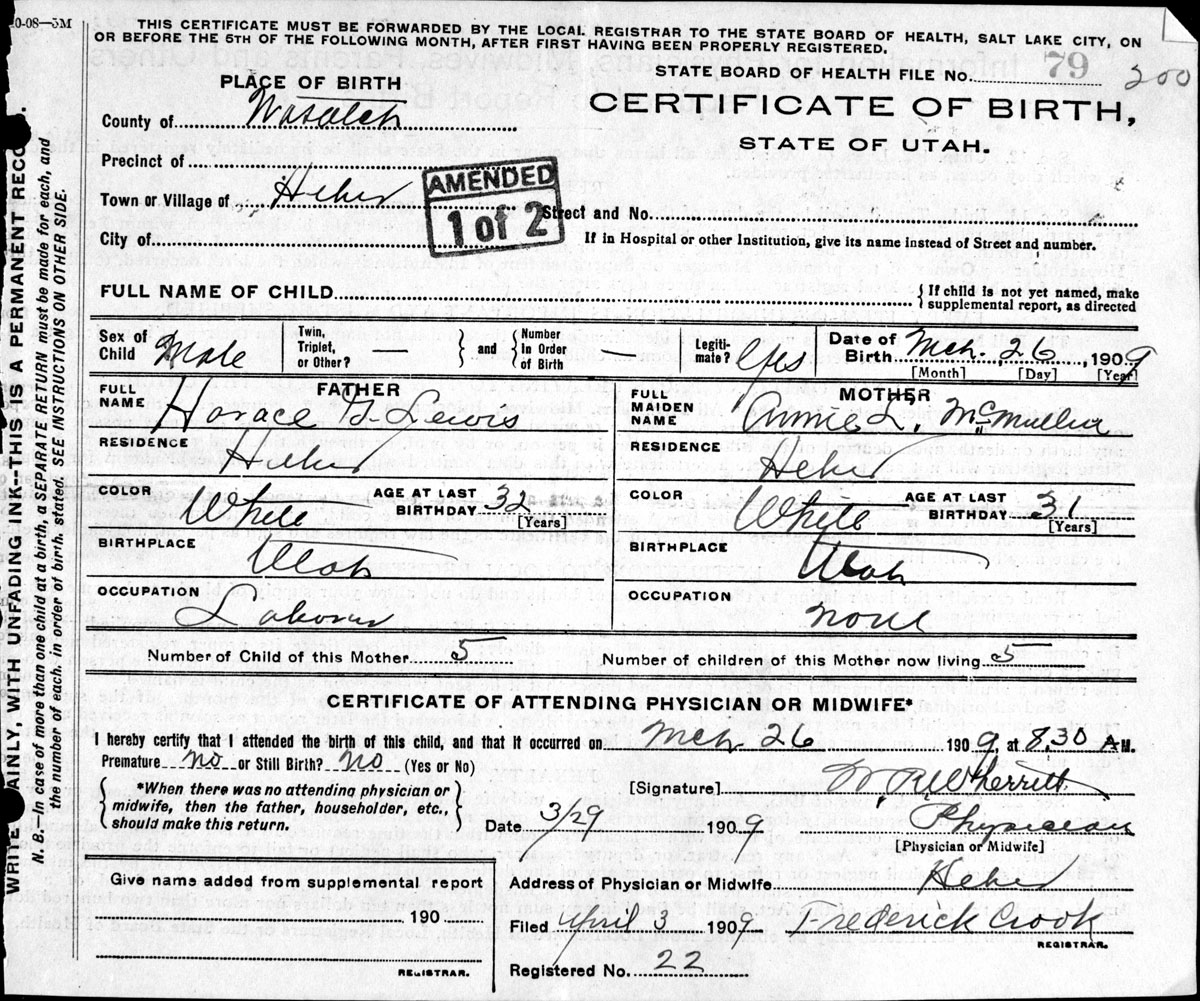 0-08—5M
THIS CERTIFICATE MUST BE FORWARDED BY THE LOCAL REGISTRAR TO THE STATE BOARD OF HEALTH, SALT LAKE CITY, ON
OR BEFORE THE 5TH OF THE FOLLOWING MONTH, AFTER FIRST HAVING BEEN PROPERLY REGISTERED.
STATE BOARD OF HEALTH FILE No. 79 200
PLACE OF BIRTH
CERTIFICATE OF BIRTH,
STATE OF UTAH.
County of Wasatch
Precinct of
Town or Village of Heber
AMENDED
1 of 2
Street and No.
City of
If in Hospital or other Institution, give its name instead of Street and number.
FULL NAME OF CHILD
{ If child is not yet named, make
supplemental report, as directed
Sex of Child Male
Twin, Triplet, or Other? —
} and {
Number In Order of Birth
Legiti- mate? Yes
Date of Birth Mch. 26, 1909
[Month] [Day] [Year]
FATHER
FULL NAME Horace Lewis
RESIDENCE
Heber
COLOR White
AGE AT LAST BIRTHDAY 32
[Years]
BIRTHPLACE
Utah
OCCUPATION
Laborer
MOTHER
FULL MAIDEN NAME Annie L. McMullin
RESIDENCE
Heber
COLOR White
AGE AT LAST BIRTHDAY 31
[Years]
BIRTHPLACE
Utah
OCCUPATION
None
Number of Child of this Mother 5
Number of children of this Mother now living 5
CERTIFICATE OF ATTENDING PHYSICIAN OR MIDWIFE*
I hereby certify that I attended the birth of this child, and that it occurred on Mch. 26 1909, at 8.30 A M.
Premature no or Still Birth? No (Yes or No)
{ *When there was no attending physician or
midwife, then the father, householder, etc.,
should make this return. }
[Signature] Wherritt
Date 3/29 1909 Physician
[Physician or Midwife]
Address of Physician or Midwife Heber
Filed April 3 1909 Frederick Crook
REGISTRAR.
Registered No. 22
Give name added from supplemental report
190
REGISTRAR.
WRITE PLAINLY, WITH UNFADING INK—THIS IS A PERMANENT RECO
N. B.—In case of more than one child at a birth, a SEPARATE RETURN must be made for each, and
the number of each, in order of birth, stated. SEE INSTRUCTIONS ON OTHER SIDE.